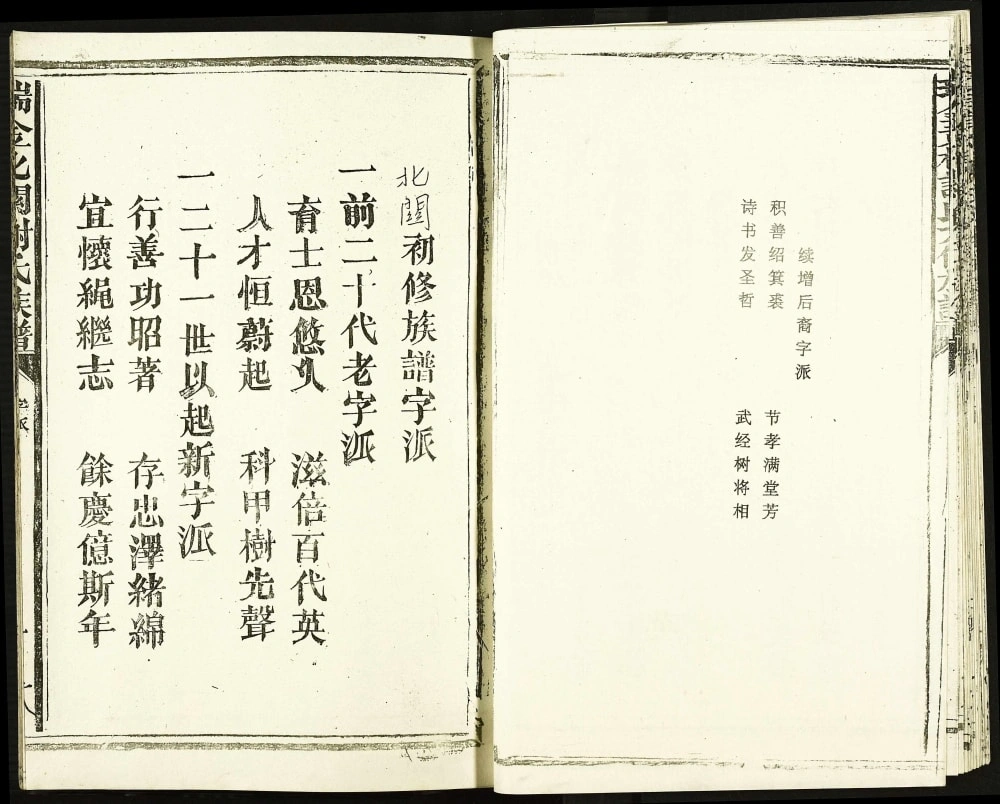 续增后裔字派
积善绍箕裘 节孝满堂芳
诗书发圣哲 武经树将相
北關初修族譜字派
一前二十代老字派
育士恩悠久 滋倍百代英
人才恒蔚起 科甲樹先聲
一二十一世以起新字派
行善功昭著 存忠澤緒綿
宜懷繩繼志 餘慶億斯年
瑞金北關謝氏族譜
字派